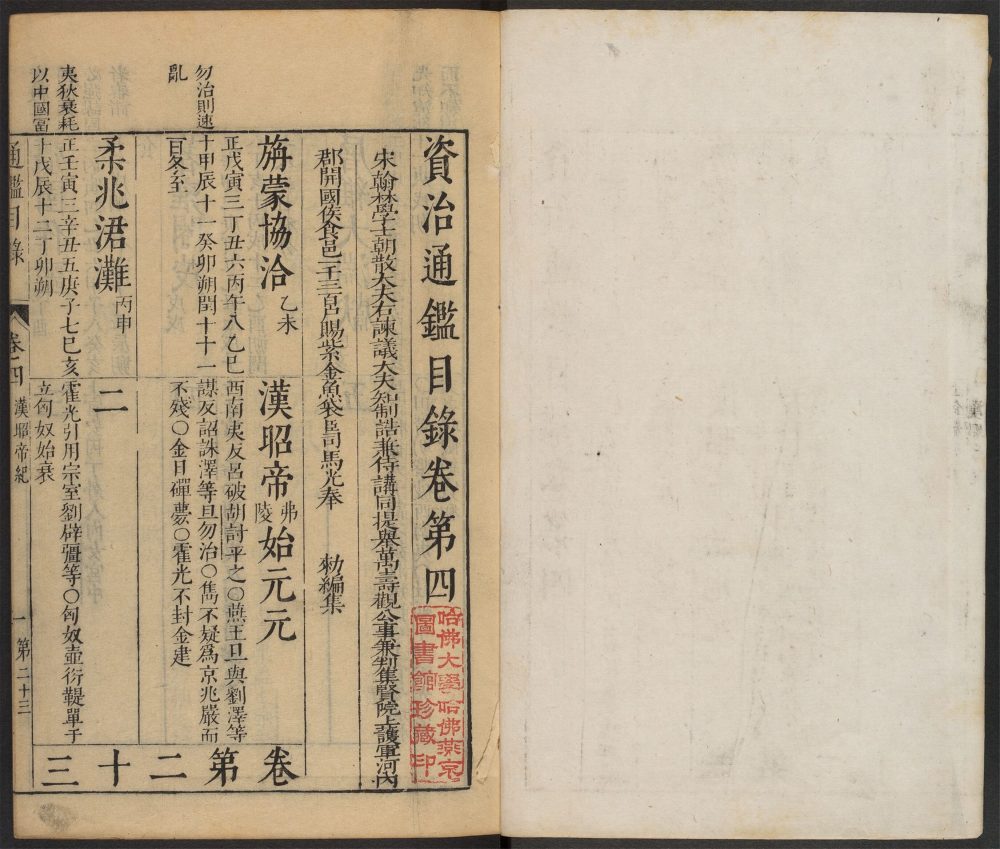 資治通鑑目錄卷第四
哈佛大學哈佛燕京
圖書館珍藏印
宋翰林學士朝散大夫右諫議大夫知制誥兼侍講同提舉萬壽觀公事兼判集賢院上護軍河內
郡開國侯食邑一千三百戶賜紫金魚袋臣司馬光奉 勑編集
旃蒙協洽 乙未
漢昭帝 弗陵 始元元
正戊寅三丁丑六丙午八乙巳
十甲辰十一癸卯朔閏十十一
百冬至
西南夷反呂破胡討平之〇燕王旦與劉澤等
謀反詔誅澤等旦勿治〇雋不疑爲京兆嚴而
不殘〇金日磾薨〇霍光不封金建
勿治則速
亂
柔兆涒灘 丙申
二
正壬寅三辛丑五庚子七巳亥
十戊辰十二丁卯朔
霍光引用宗室劉辟彊等〇匈奴壺衍鞮單于
立匈奴始衰
夷狄衰耗
以中國富
卷第二十三
通鑑目錄
卷四 漢昭帝紀
一 第二十三